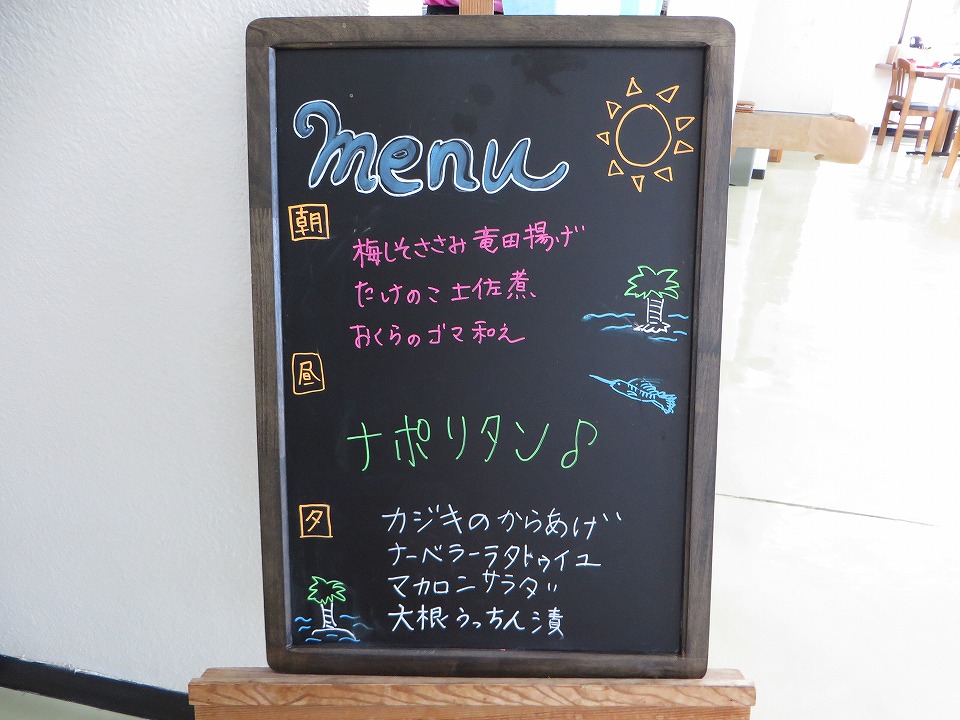 menu
朝
梅しそささみ竜田揚げ
たけのこ土佐煮
おくらのゴマ和え
昼
ナポリタン♪
夕
カジキのからあげ
ナーベラーラタトゥイユ
マカロニサラダ
大根うっちん漬